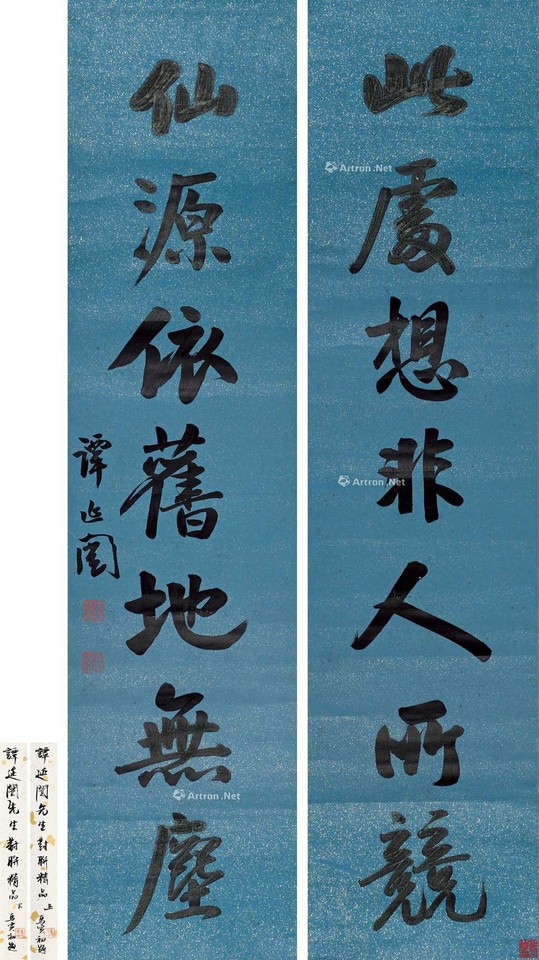 此處想非人所競
仙源依舊地無塵
譚延闓
譚延闓先生對聯精品 上
譚延闓先生對聯精品 下
Artron.Net
Artron.Net
Artron.Net